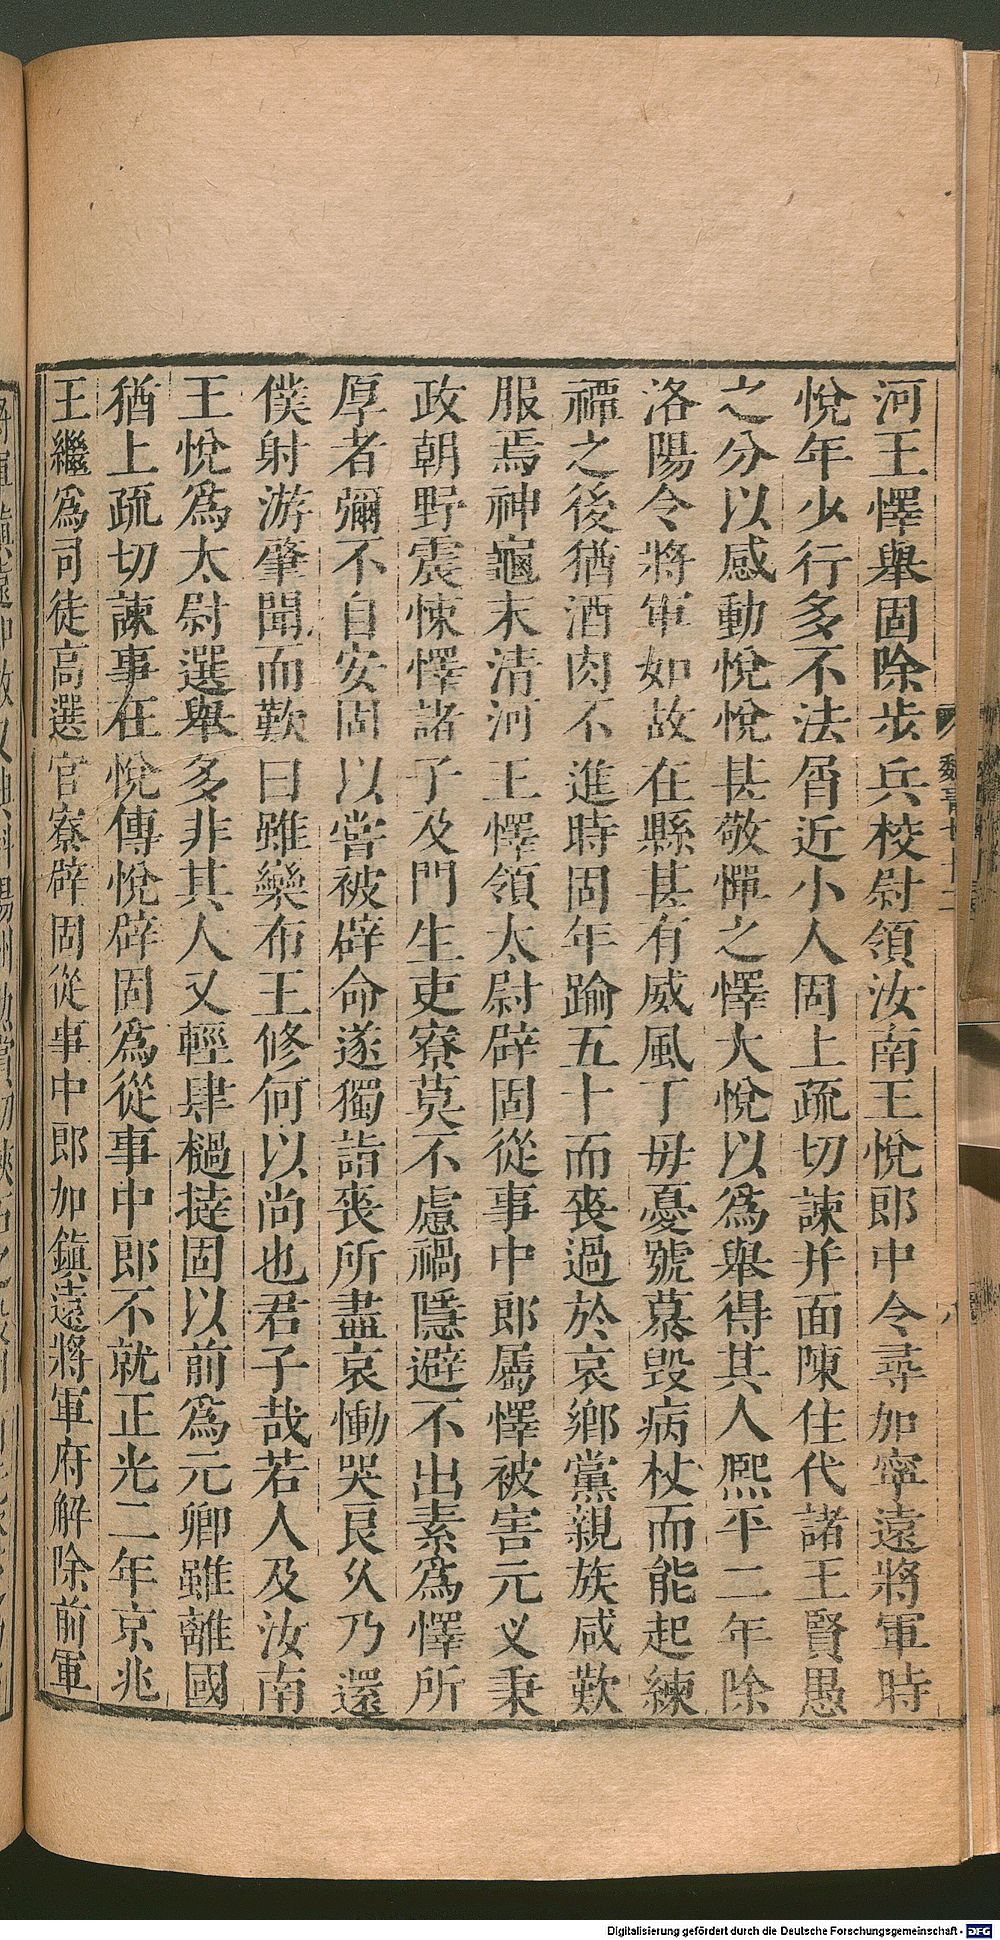 河王懌舉固除步兵校尉領汝南王悅郎中令尋加寧遠將軍時
悅年少行多不法屑近小人固上疏切諫并面陳往代諸王賢愚
之分以感動悅悅甚敬憚之懌大悅以爲舉得其人熙平二年除
洛陽令將軍如故在縣甚有威風丁毋憂號慕毀病杖而能起練
禫之後猶酒肉不進時固年踰五十而喪過於哀鄉黨親族咸歎
服焉神龜末清河王懌領太尉辟固從事中郎屬懌被害元乂秉
政朝野震悚懌諸子及門生吏寮莫不慮禍隱避不出素爲懌所
厚者彌不自安固以嘗被辟命遂獨詣喪所盡哀慟哭良久乃還
僕射游肇聞而歎曰雖欒布王修何以尚也君子哉若人及汝南
王悅爲太尉選舉多非其人又輕肆檛撻固以前爲元卿雖離國
猶上疏切諫事在悅傳悅辟固爲從事中郎不就正光二年京兆
王繼爲司徒高選官寮辟固從事中郎加鎭遠將軍府解除前軍
魏書七十二
八
Digitalisierung gefördert durch die Deutsche Forschungsgemeinschaft - DFG